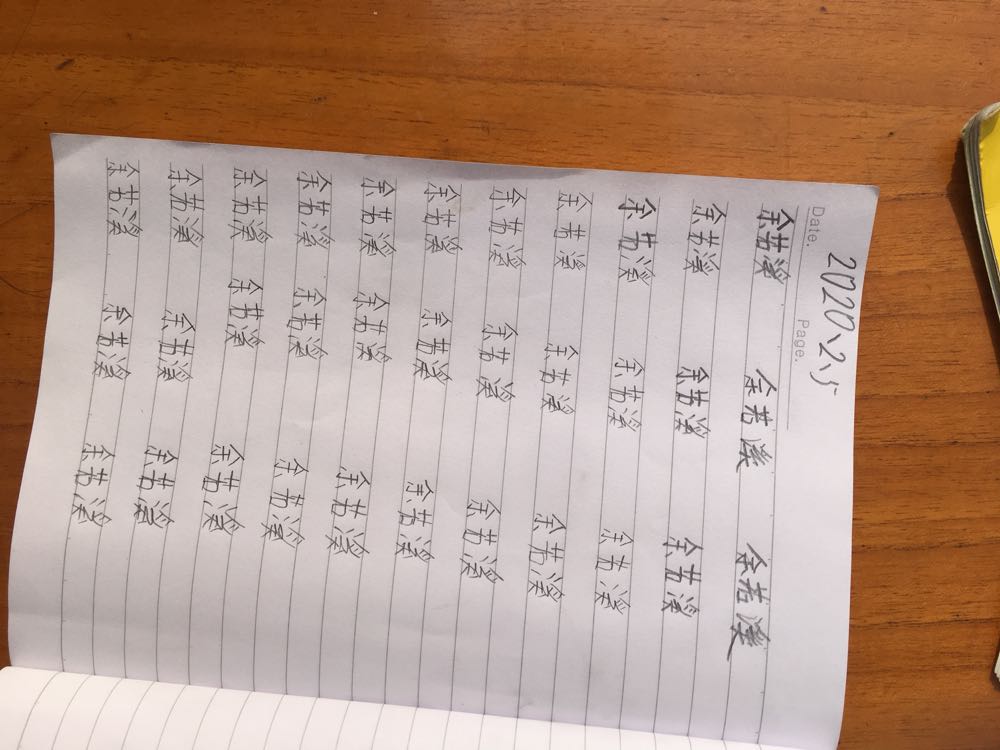 2020、2、5
Date. Page.
余若溪 余若溪 余若溪
余若溪 余若溪 余若溪
余若溪 余若溪 余若溪
余若溪 余若溪 余若溪
余若溪 余若溪 余若溪
余若溪 余若溪 余若溪
余若溪 余若溪 余若溪
余若溪 余若溪 余若溪
余若溪 余若溪 余若溪
余若溪 余若溪 余若溪
余若溪 余若溪 余若溪